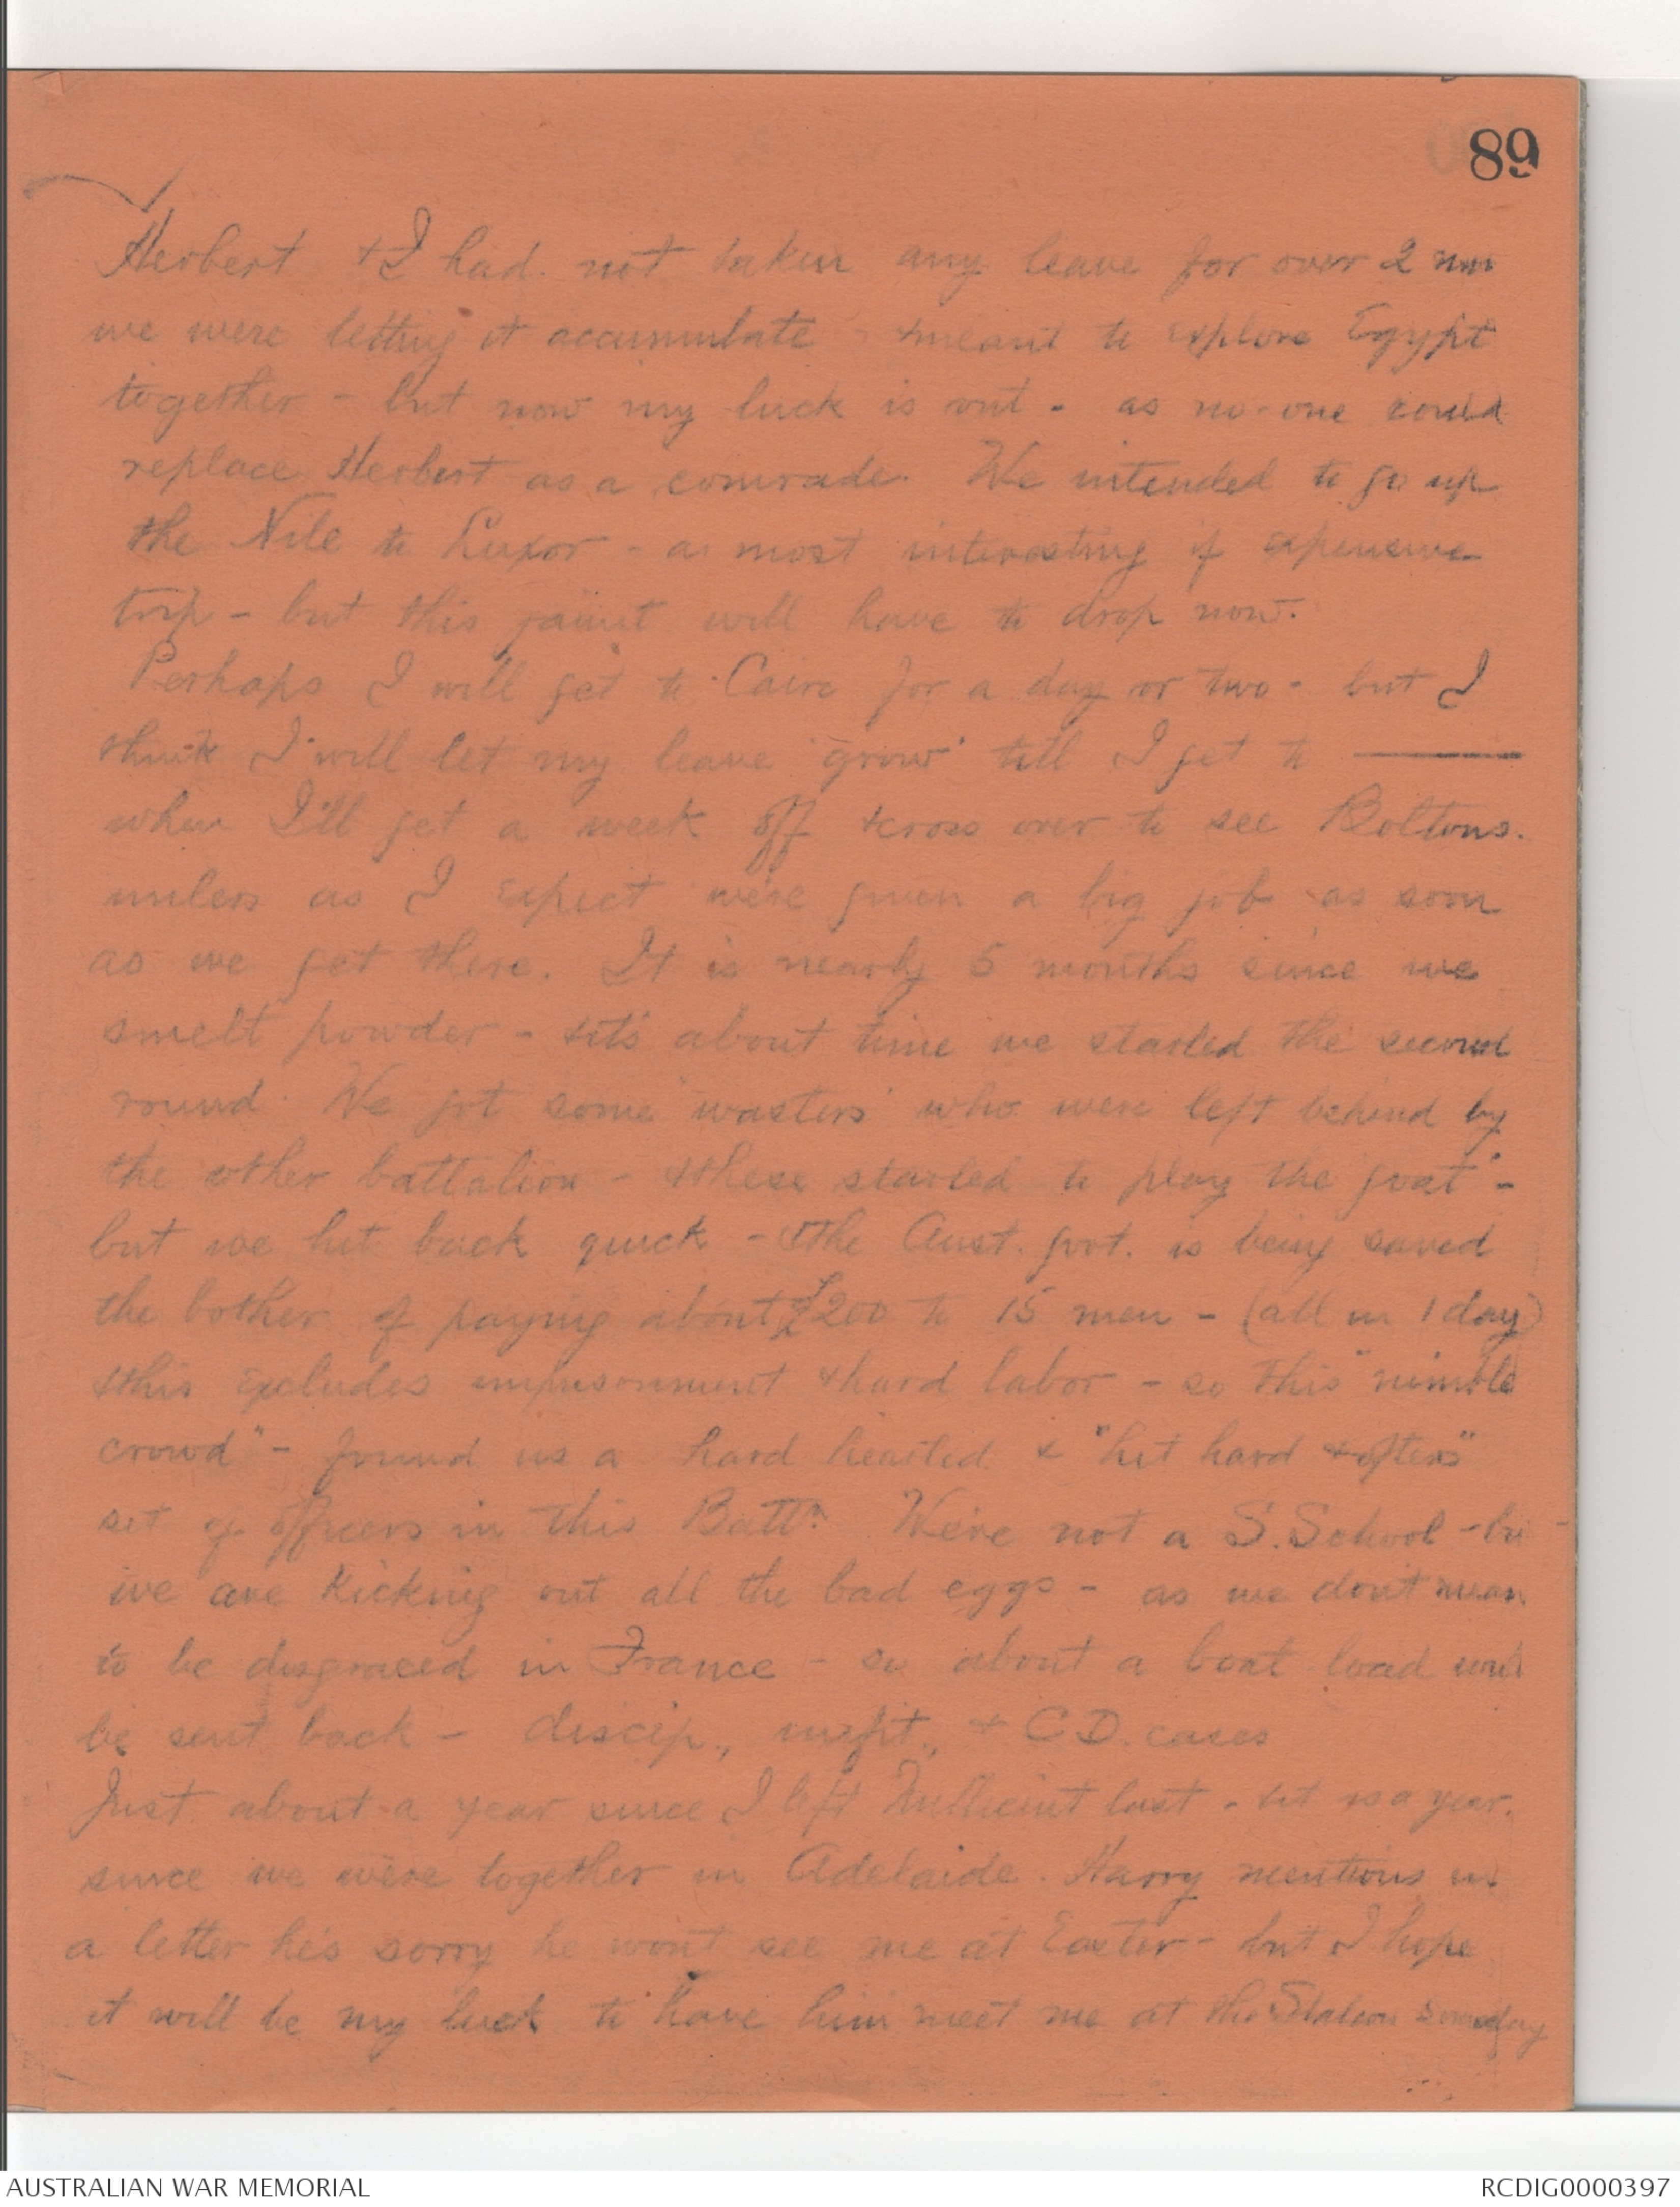 89
Herbert + I had not taken any leave for over 2
we were letting it accumulate + meant to explore Egypt
together - but now my luck is out - as no-one could
replace Herbert as a comrade. We intended to go up
the Nile to Luxor - a most interesting if expensive
trip - but this jaunt will have to drop now.
Perhaps I will get to Cairo for a day or two - but I
think I will let my leave 'grow' till I get to ———
when I'll get a week off + cross over to see Boltons.
unless as I expect we're given a big job as soon
as we get there. It is nearly 5 months since we
smelt powder - + it's about time we started the second
round. We got some 'wasters' who were left behind by
the other battalion - + these started to "play the goat" -
but we hit back quick - + the Aust. govt. is being saved
the bother of paying about £200 to 15 men - (all in 1 day)
+ this excludes imprisonment + hard labor - so this "nimble
crowd" - found us a hard hearted + "hit hard + often"
set of officers in this Battn. We're not a S. School -
we are kicking out all the bad eggs - as we don't mean
to be disgraced in France - so about a boat load will
be sent back - discip., misfit, + C.D. cases
Just about a year since I left Millicent last - + it is a year.
since we were together in Adelaide. Harry mentions in
a letter he's sorry he won't see me at Easter - but I hope
it will be my luck to have him meet me at the Station someday
AUSTRALIAN WAR MEMORIAL
RCDIG0000397